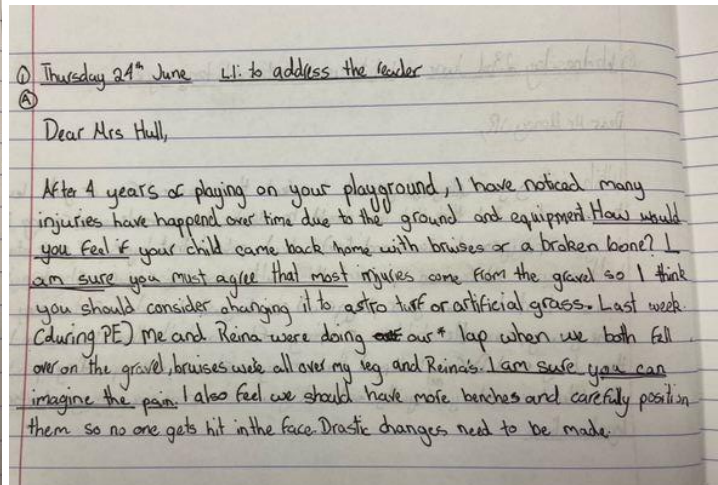 ① Thursday 24th June LI: to address the reader
Ⓐ
Dear Mrs Hull,
After 4 years of playing on your playground, I have noticed many
injuries have happend over time due to the ground and equipment. How would
you feel if your child came back home with bruises or a broken bone? I
am sure you must agree that most injuries come from the gravel so I think
you should consider changing it to astro turf or artificial grass. Last week
(during PE) me and Reina were doing our* lap when we both fell
over on the gravel, bruises were all over my leg and Reina's. I am sure you can
imagine the pain. I also feel we should have more benches and carefully position
them so no one gets hit in the face. Drastic changes need to be made.